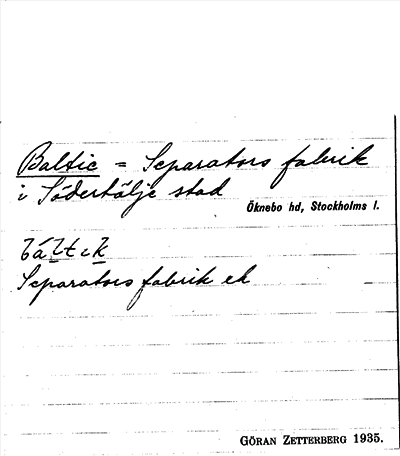 Baltic = Separators fabrik
i Södertälje stad
Öknebo hd, Stockholms l.
Separators fabrik
GÖRAN ZETTERBERG 1935.